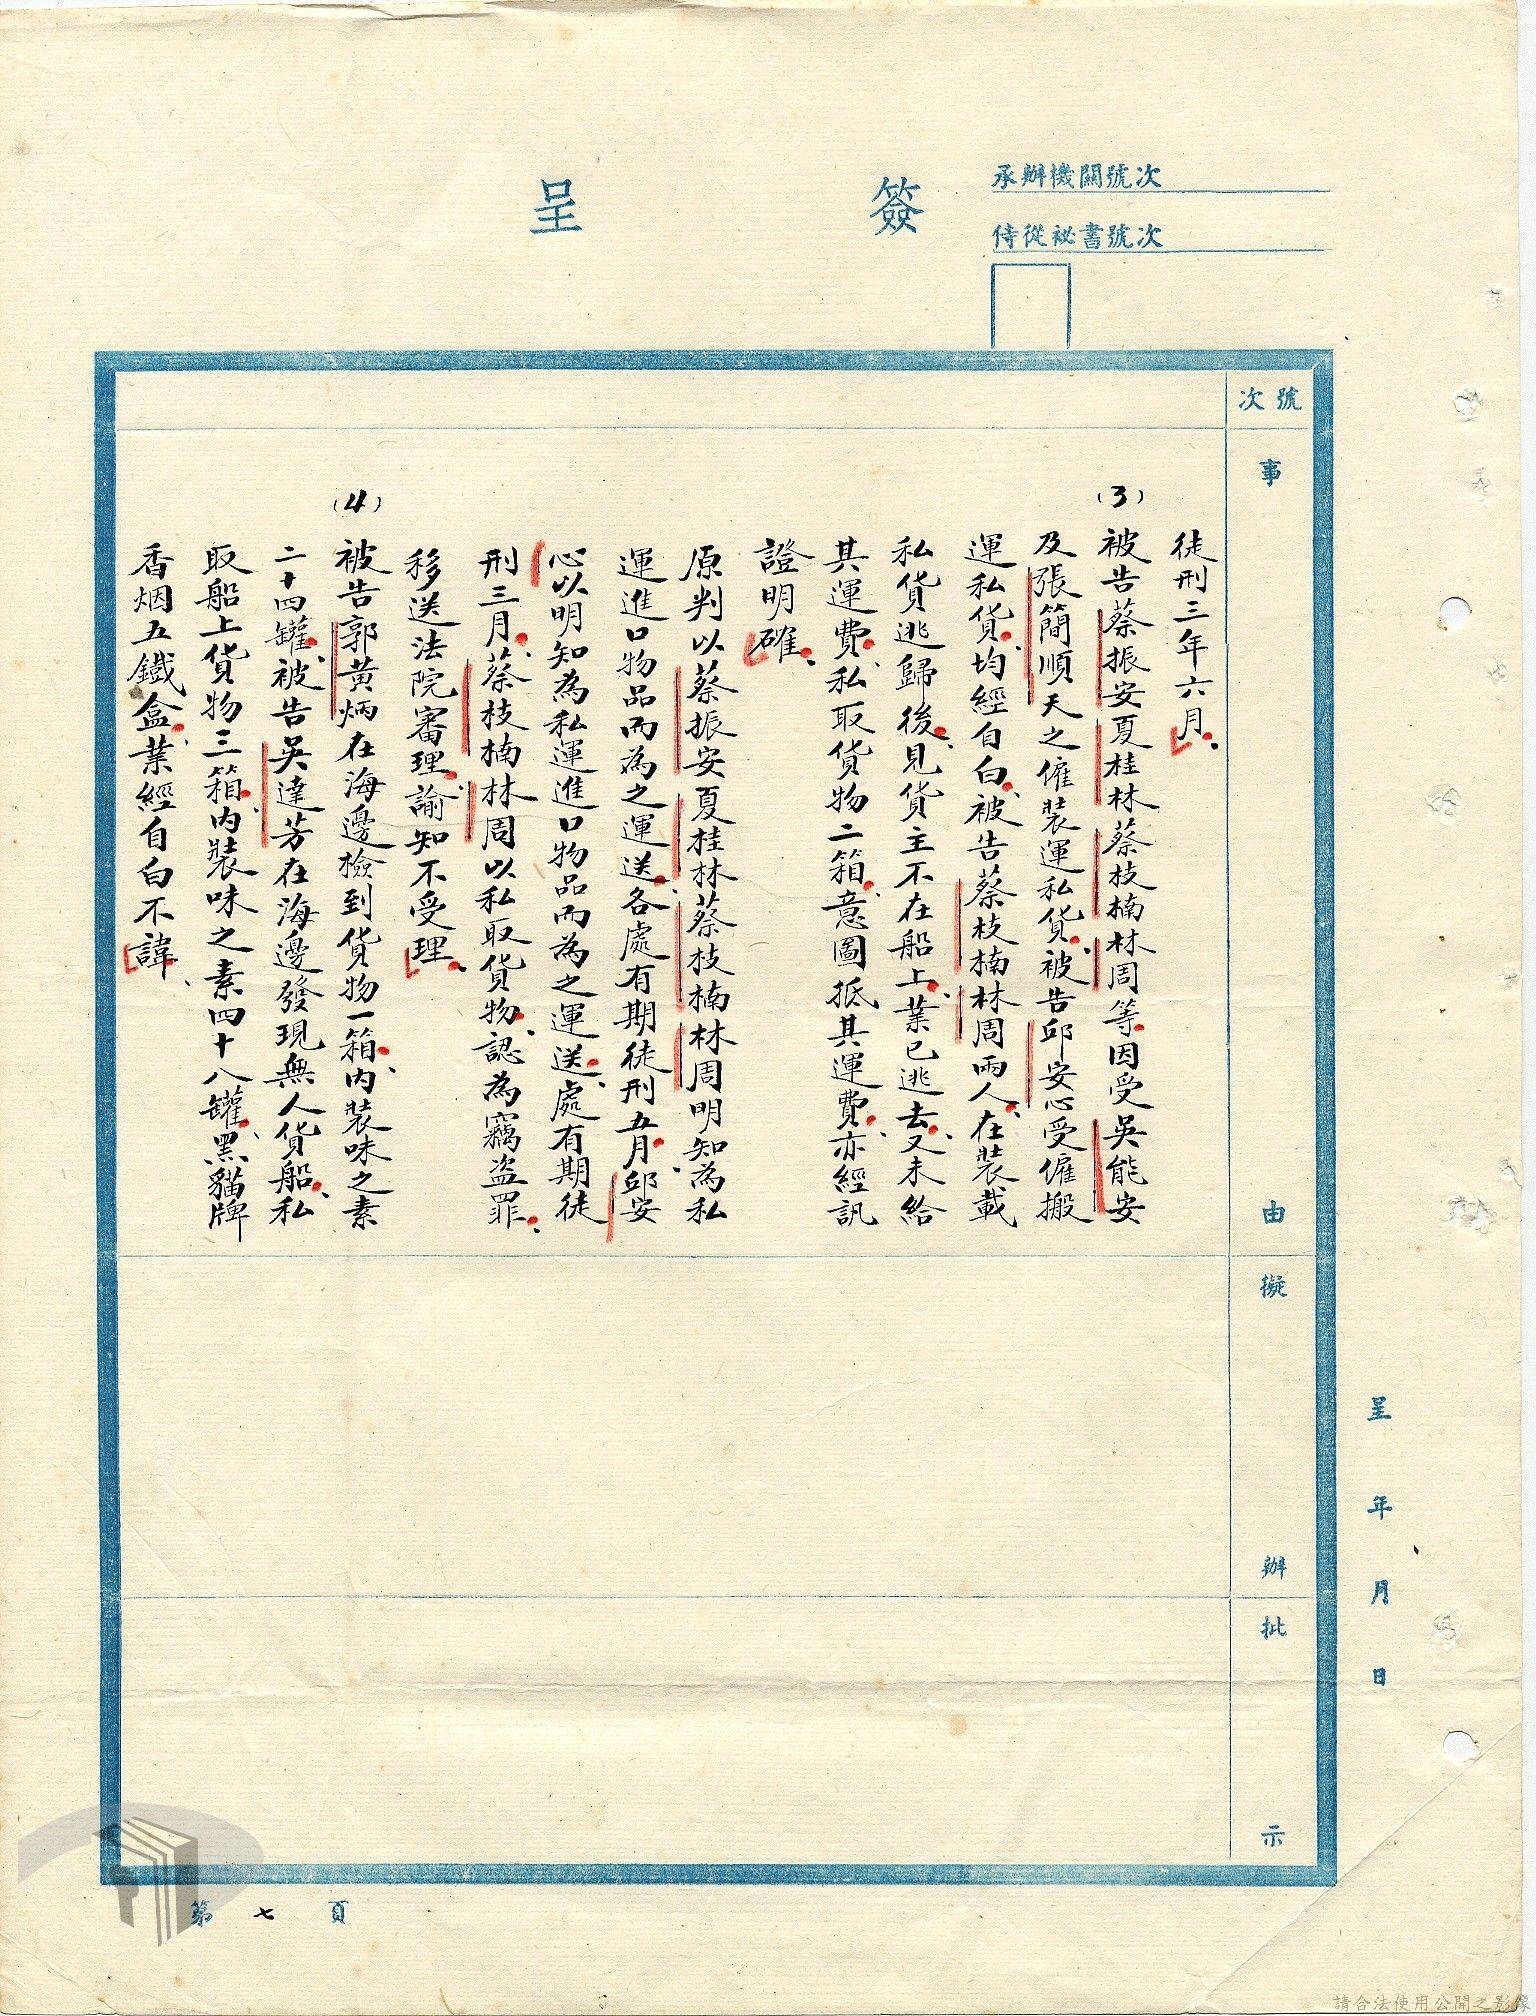 承辦機關號次
侍從祕書號次
簽呈
號次
事由
擬辦
批示
徒刑三年六月。
(3)
被告蔡振安夏桂林蔡枝楠林周等。因受吳能安
及張簡順天之僱裝運私貨。被告邱安心受僱搬
運私貨。均經自白。被告蔡枝楠林周兩人。在裝載
私貨逃歸後。見貨主不在船上。業已逃去。又未給
其運費。私取貨物二箱。意圖抵其運費。亦經訊
證明確。
原判以蔡振安夏桂林蔡枝楠林周明知為私
運進口物品而為之運送。各處有期徒刑五月。邱安
心以明知為私運進口物品而為之運送。處有期徒
刑三月。蔡枝楠林周以私取貨物。認為竊盗罪。
移送法院審理。諭知不受理。
(4)
被告郭黄炳在海邊檢到貨物一箱。内裝味之素
二十四罐。被告吳達芳在海邊發現無人貨船。私
取船上貨物三箱。内裝味之素四十八罐。黑貓牌
香烟五鐵盒。業經自白不諱。
呈 年 月 日
第七頁
請合法使用公開之影像